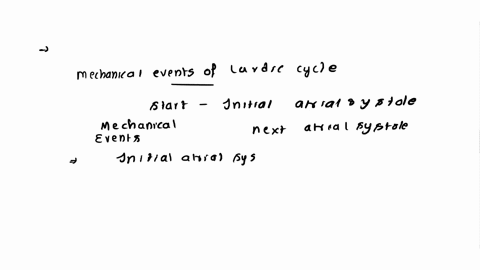 →
Mechanical events of Cardic cycle
start - Initial atrial systole
Mechanical Events next atrial systole
⇒ Initial atrial sys